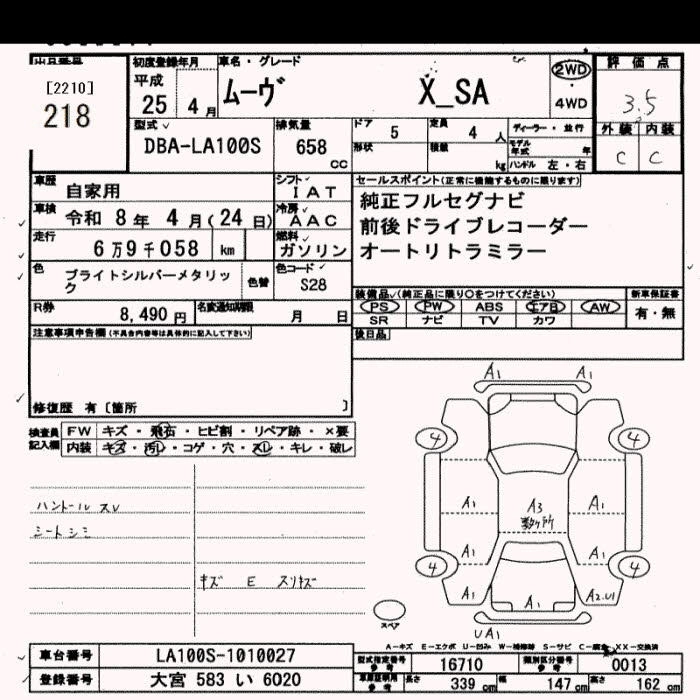 出品番号 初度登録年月 車名・グレード 評価点
[2210]
218
平成
25 4月
ムーヴ X_SA
2WD
4WD
3.5
外装 内装
C C
型式
DBA-LA100S
排気量
658
CC
ドア 5
定員 4人
ディーラー・並行
形状 積載 kg
モデル年式 年
ハンドル 左・右
車歴 自家用
シフト
IAT
セールスポイント(正常に機能するものに限ります)
純正フルセグナビ
前後ドライブレコーダー
オートリトラミラー
車検 令和 8年 4月(24日)
冷房
AAC
走行 6万9千058 km
燃料
ガソリン
色 ブライトシルバーメタリック
色替
色コード
S28
装備品(純正品に限り○をつけてください)
新車保証書
PS PW ABS エアB AW
有・無
SR ナビ TV カワ
R券 8,490円
名変通知期限 月 日
後日品
注意事項申告欄(不具合内容等は具体的に記入して下さい)
修復歴 有〔箇所 〕
検査員記入欄
FW キズ・飛石・ヒビ割・リペア跡・×要
内装 キズ・汚レ・コゲ・穴・スレ・キレ・破レ
ハンドル スレ
シートシミ
キズ E スリキズ
A1 A1
4 4
A1 A3 A1
数ヶ所
A1 A1
4 4
A1 A1 A2.U1
UA1
スペア
A-キズ E-エクボ U-凹み W-補修跡 S-サビ C-腐食 XX-交換済
車台番号 LA100S-1010027
登録番号 大宮 583 い 6020
型式指定番号 参考 16710
類別区分番号 参考 0013
車庫証明用 参考 長さ 339 cm 幅 147 cm 高さ 162 cm